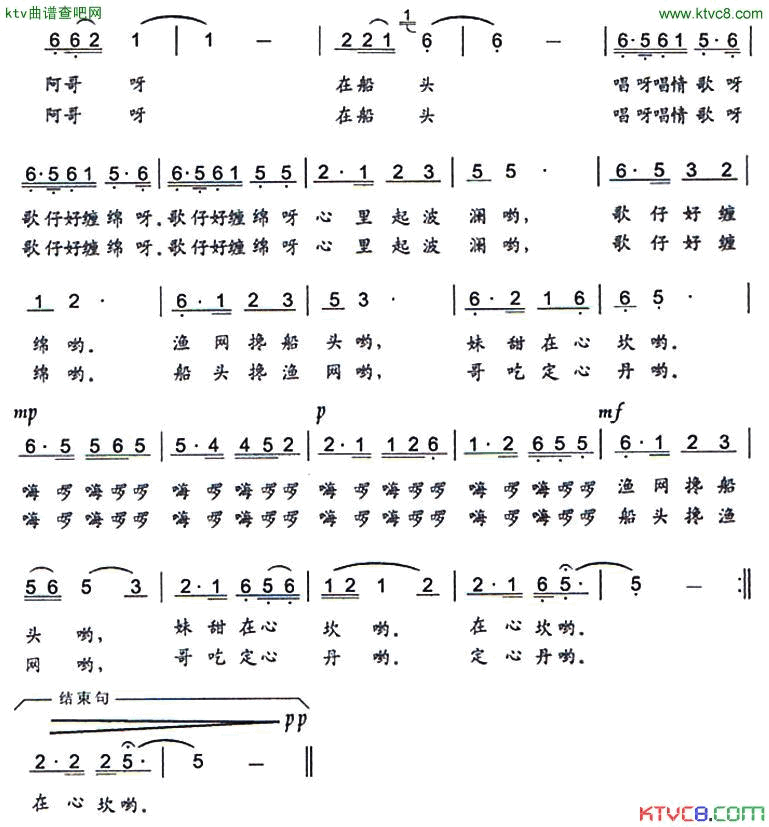 ktv曲谱查吧网 www.ktvc8.com
6 6 2 1 | 1 — | 2 2 1 1 6 | 6 — | 6·5 6 1 5·6 |
阿哥 呀 在船 头 唱呀唱情歌呀
阿哥 呀 在船 头 唱呀唱情歌呀
6·5 6 1 5·6 | 6·5 6 1 5 5 | 2·1 2 3 | 5 5· | 6·5 3 2 |
歌仔好缠绵呀.歌仔好缠绵呀 心里起波 澜哟, 歌仔好缠
歌仔好缠绵呀.歌仔好缠绵呀 心里起波 澜哟, 歌仔好缠
1 2· | 6·1 2 3 | 5 3· | 6·2 1 6 | 6 5· |
绵哟. 渔网搀船 头哟, 妹甜在心 坎哟.
绵哟. 船头搀渔 网哟, 哥吃定心 丹哟.
mp p mf
6·5 5 6 5 | 5·4 4 5 2 | 2·1 1 2 6 | 1·2 6 5 5 | 6·1 2 3 |
嗨啰嗨啰啰 嗨啰嗨啰啰 嗨啰嗨啰啰 嗨啰嗨啰啰 渔网搀船
嗨啰嗨啰啰 嗨啰嗨啰啰 嗨啰嗨啰啰 嗨啰嗨啰啰 船头搀渔
5 6 5 3 | 2·1 6 5 6 | 1 2 1 2 | 2·1 6 5· | 5 — :||
头 哟, 妹甜在心 坎 哟. 在心坎哟.
网 哟, 哥吃定心 丹 哟. 定心丹哟.
结束句
pp
2·2 2 5· | 5 — ||
在心坎哟.
KTVC8.COM